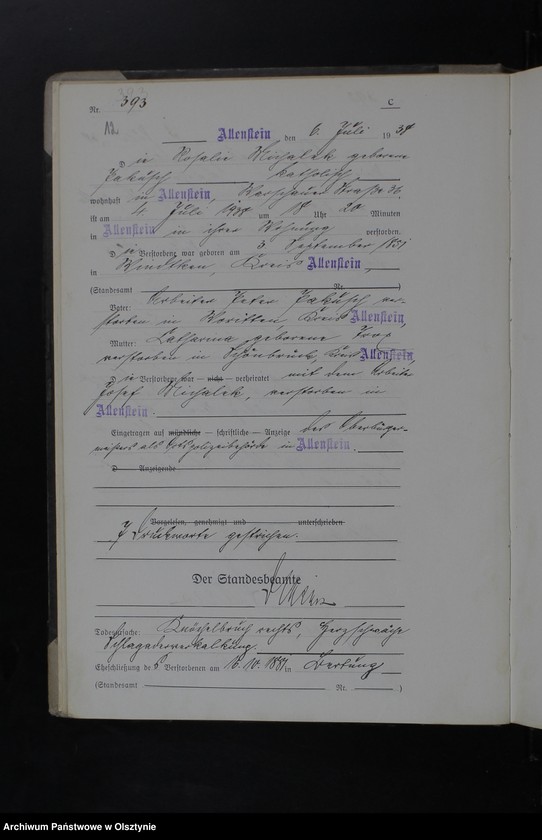 Nr. 393
C
Allenstein den 6. Juli 1938
Die Rosalie Michalek geborene
katholisch
wohnhaft in Allenstein, Warschauer Straße 34.
ist am 4. Juli 1938 um 18 Uhr 20 Minuten
in Allenstein in ihrer Wohnung verstorben.
Die Verstorbene war geboren am 3. September 1851
in Windtken, Kreis Allenstein,
(Standesamt Nr. )
Vater: Arbeiter Peter ver-
storben in Woritten Kreis Allenstein,
Mutter: Catharina geborene
verstorben in Schönbrück, Kreis Allenstein,
Die Verstorbene war — nicht — verheiratet mit dem Arbeiter
Josef Michalek, verstorben in
Allenstein.
Eingetragen auf mündliche — schriftliche — Anzeige des Oberbürger-
meisters als Ortspolizeibehörde in Allenstein.
D Anzeigende
Vorgelesen, genehmigt und unterschrieben
7 Druckworte gestrichen.
Der Standesbeamte
Todesursache: Knöchelbruch rechts, Herzschwäche
Schlagaderverkalkung.
Eheschließung de Verstorbenen am 16.10.1887 in Bertung
(Standesamt Nr. )
Archiwum Państwowe w Olsztynie